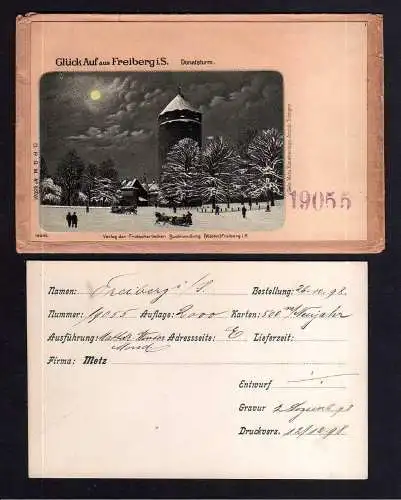 Glück Auf aus Freiberg i. S. Donatsturm.
19055
19055. Verlag der Frotscher'schen Buchhandlung Freiberg i. S.
Namen: Freiberg i/S. Bestellung: 26.10.98.
Nummer: 19055 Auflage: 2000 Karten: 500 m/ Neujahr
Ausführung: Winter Adresseseite: E Lieferzeit:
Mond
Firma: Metz
Entwurf
Gravur 2 98
Druckverz. 12/12 98.